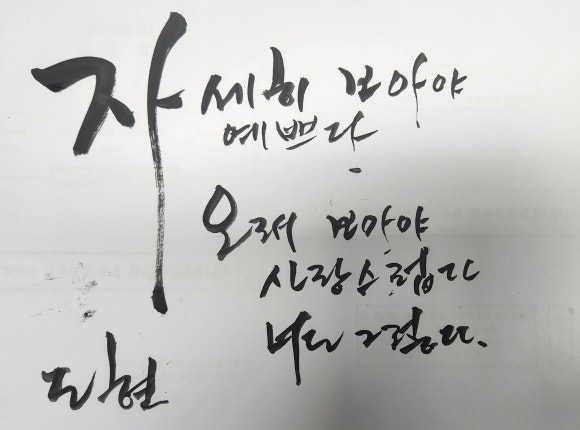 자세히 보아야
예쁘다
오래 보아야
사랑스럽다
너도 그렇다.
도현